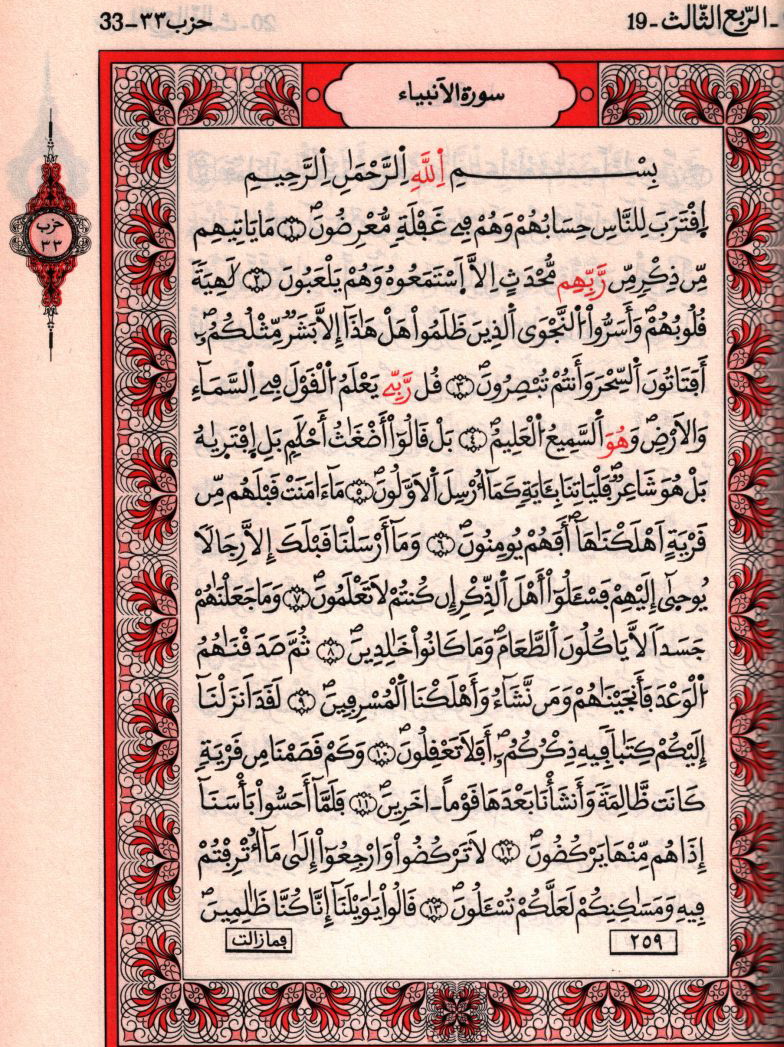 ـ الرّبع الثّالث - 19
حزب ٣٣ - 33
سورة الأنبياء
حزب
٣٣
بِسْـــــــــمِ اِللَّهِ اِلرَّحْمَٰنِ اِلرَّحِيـمِ
اِقْتَرَبَ لِلنَّاسِ حِسَابُهُمْ وَهُمْ فِے غَفْلَةٖ مُّعْرِضُونَۖ ١ مَا يَاتِيهِم
مِّن ذِكْرٖ مِّن رَّبِّهِم مُّحْدَثٍ اِلاَّ اَ۪سْتَمَعُوهُ وَهُمْ يَلْعَبُونَ ٢ لَٰهِيَةٗ
قُلُوبُهُمْۖ وَأَسَرُّواْ اُ۬لنَّجْوَى اَ۬لذِينَ ظَلَمُواْ هَلْ هَٰذَا إِلاَّ بَشَرٞ مِّثْلُكُمُۥٓۖ
أَفَتَاتُونَ اَ۬لسِّحْرَ وَأَنتُمْ تُبْصِرُونَۖ ٣ قُل رَّبِّے يَعْلَمُ اُ۬لْقَوْلَ فِے اِ۬لسَّمَآءِ
وَالاَرْضِۖ وَهُوَ اَ۬لسَّمِيعُ اُ۬لْعَلِيمُۖ ٤ بَلْ قَالُوٓاْ أَضْغَٰثُ أَحْلَٰمِۢ بَلِ اِ۪فْتَر۪يٰهُ
بَلْ هُوَ شَاعِرٞۖ فَلْيَاتِنَا بِـَٔايَةٖ كَمَآ أُرْسِلَ اَ۬لاَوَّلُونَۖ ٥ مَآ ءَامَنَتْ قَبْلَهُم مِّن
قَرْيَةٍ اَهْلَكْنَٰهَآۖ أَفَهُمْ يُومِنُونَۖ ٦ وَمَآ أَرْسَلْنَا قَبْلَكَ إِلاَّ رِجَالاٗ
يُوحَيٰٓ إِلَيْهِمْۖ فَسْـَٔلُوٓاْ أَهْلَ اَ۬لذِّكْرِ إِن كُنتُمْ لاَ تَعْلَمُونَۖ ٧ وَمَا جَعَلْنَٰهُمْ
جَسَداٗ لاَّ يَاكُلُونَ اَ۬لطَّعَامَۖ وَمَا كَانُواْ خَٰلِدِينَۖ ٨ ثُمَّ صَدَقْنَٰهُمُ
اُ۬لْوَعْدَ فَأَنجَيْنَٰهُمْ وَمَن نَّشَآءُ وَأَهْلَكْنَا اَ۬لْمُسْرِفِينَۖ ٩ لَقَدَ اَنزَلْنَآ
إِلَيْكُمْ كِتَٰباٗ فِيهِ ذِكْرُكُمُۥٓۖ أَفَلاَ تَعْقِلُونَۖ ١٠ وَكَمْ قَصَمْنَا مِن قَرْيَةٖ
كَانَت ظَّالِمَةٗ وَأَنشَأْنَا بَعْدَهَا قَوْماً ـ اٰخَرِينَۖ ١١ فَلَمَّآ أَحَسُّواْ بَأْسَنَآ
إِذَا هُم مِّنْهَا يَرْكُضُونَۖ ١٢ لاَ تَرْكُضُواْ وَارْجِعُوٓاْ إِلَىٰ مَآ أُتْرِفْتُمْ
فِيهِ وَمَسَٰكِنِكُمْ لَعَلَّكُمْ تُسْـَٔلُونَۖ ١٣ قَالُواْ يَٰوَيْلَنَآ إِنَّا كُنَّا ظَٰلِمِينَۖ
٢٥٩
فما زالت